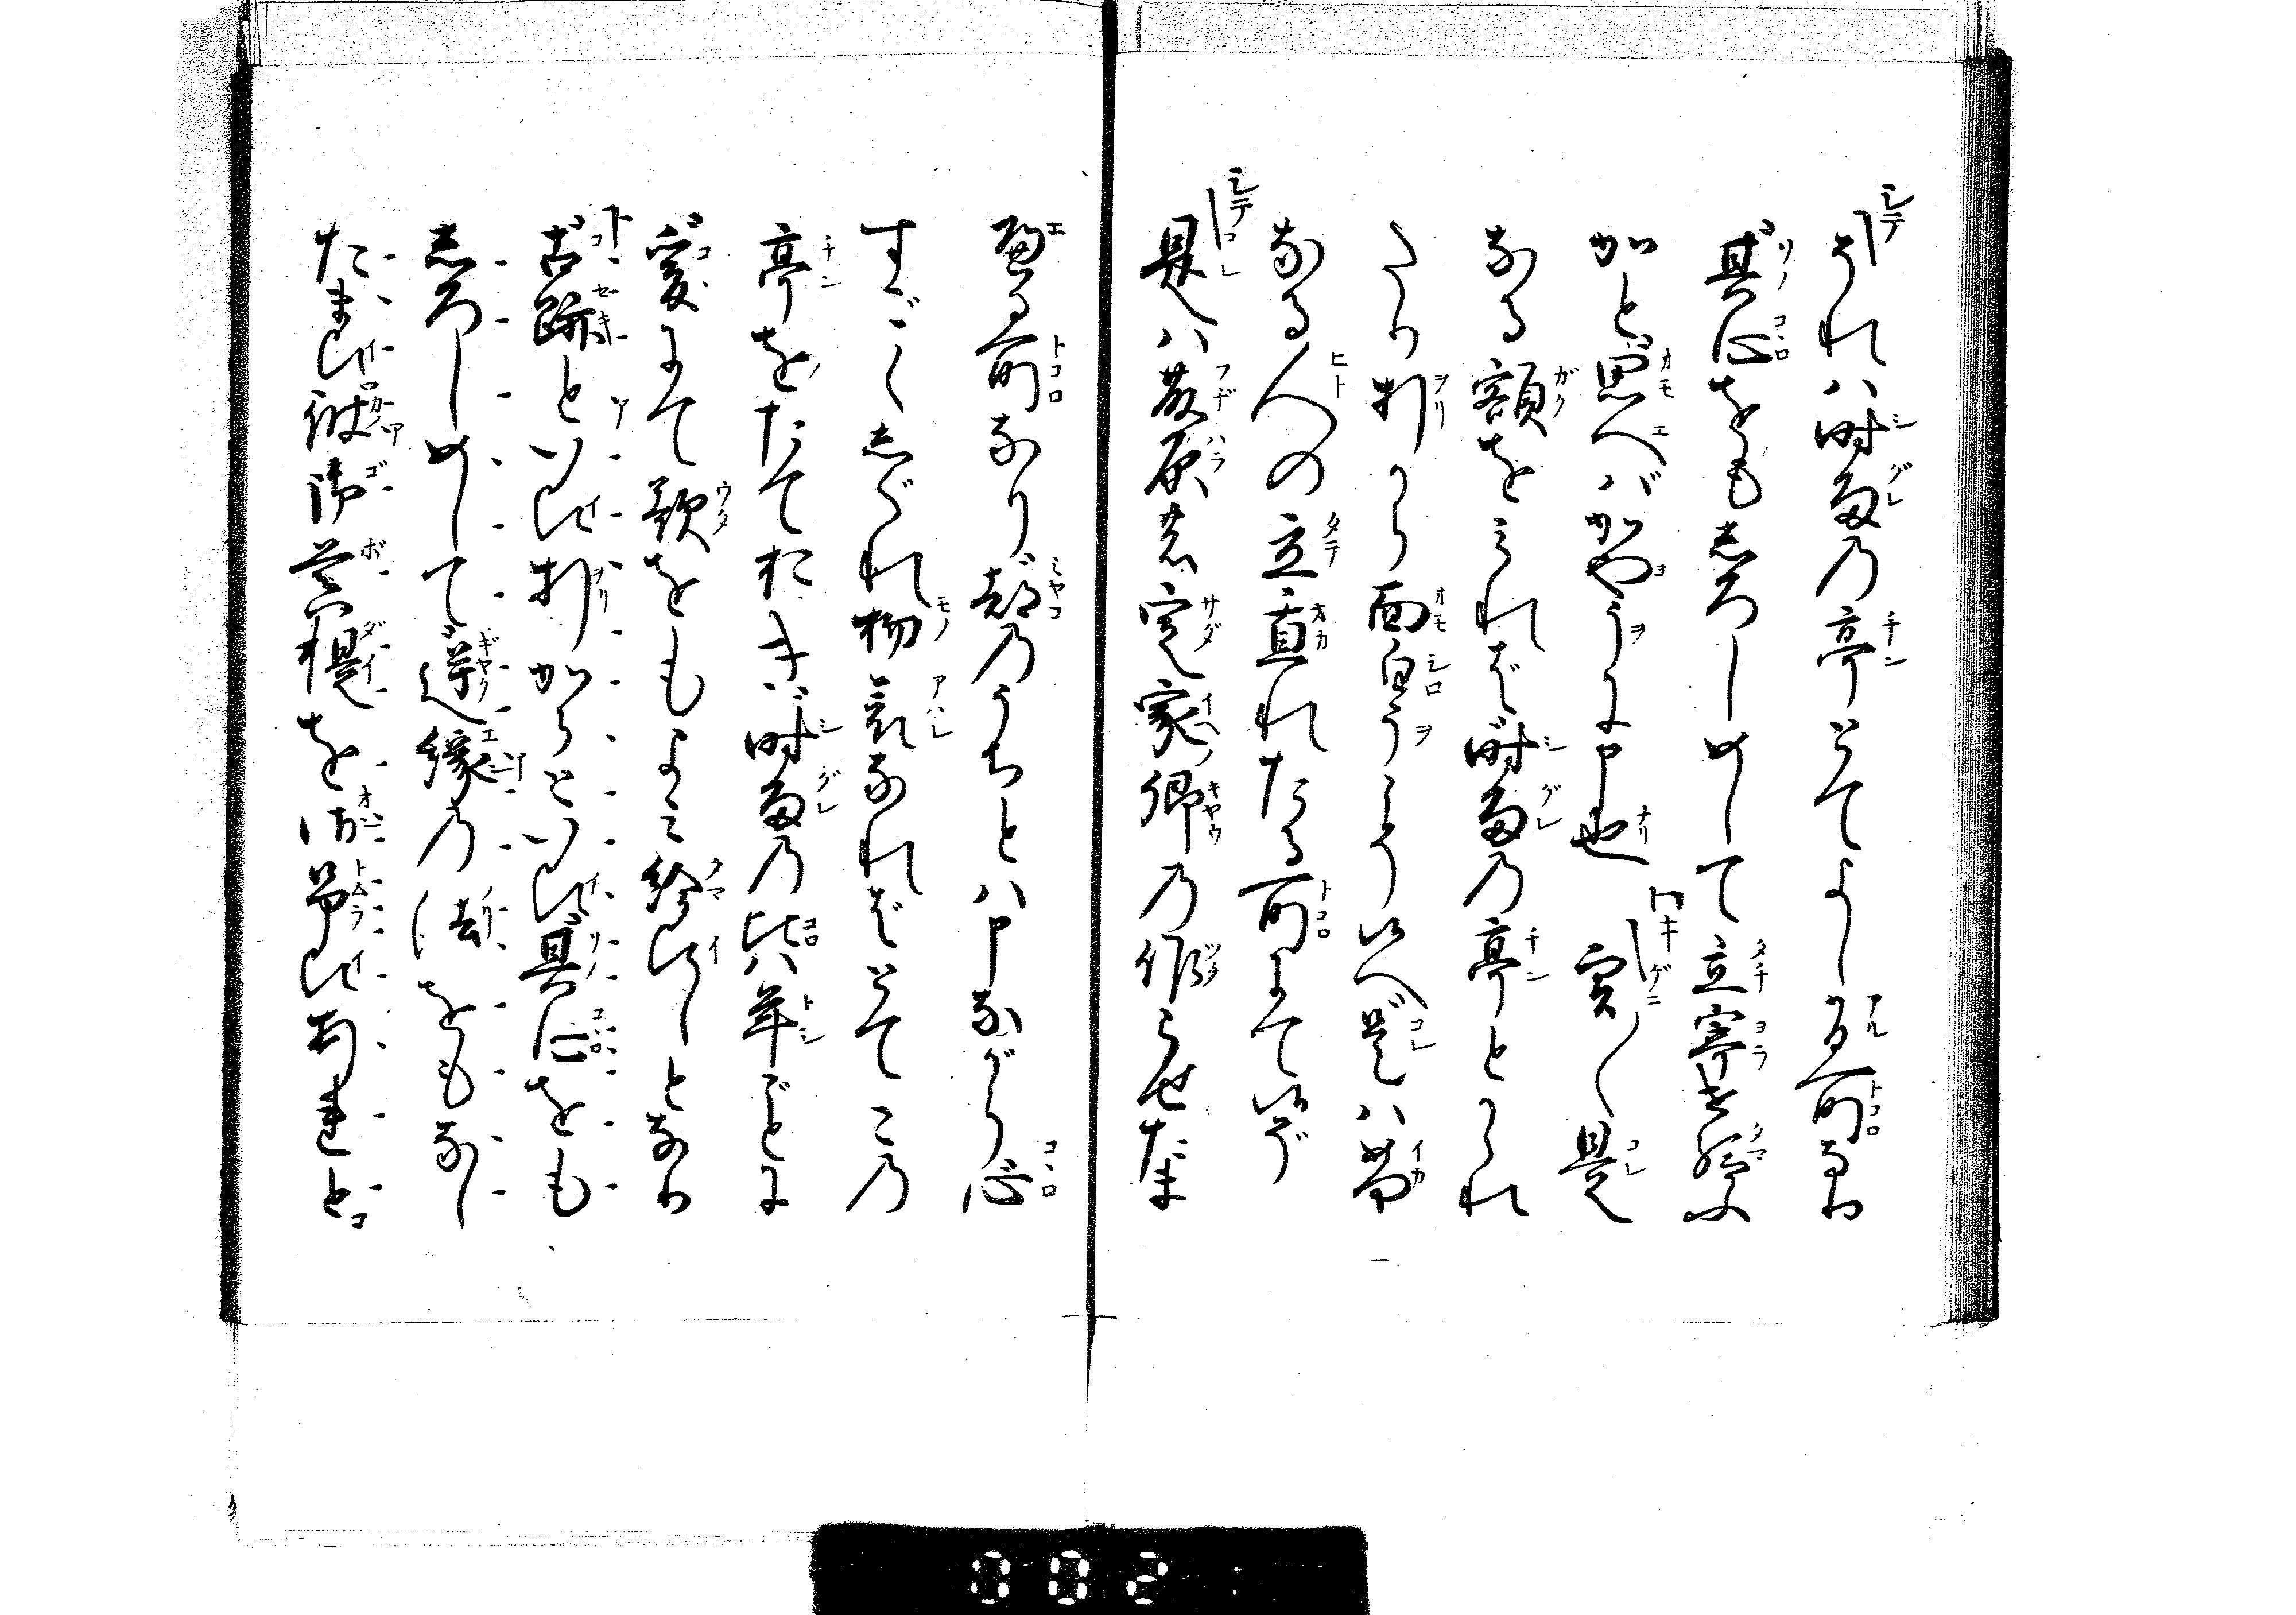 シテ それハ時雨の亭とてよしある所なり
其心をもしろしめして立寄せ給ふ
かと思へバかやうに申也 ワキ 実〳〵是
なる額をみれば時雨の亭とかゝれ
たり折から面白うこそ候へ是ハ如何
なる人の立置れたる所にて候ぞ
シテ 是ハ藤原の定家卿の作らせたま
へる所なり都のうちとハ申ながら心
すごくしぐれ物哀なればとてこの
亭をたてをき時雨の比ハ年ごとに
爰にて歌をもよミ給ひしとなり
古跡といひ折からといひ其心をも
しろしめして逆縁の法をもなし
たまひ彼御菩提を御弔ひあれと
002